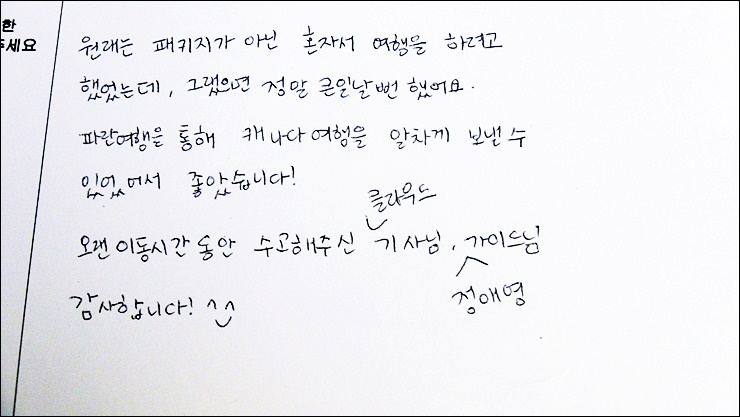 한
주세요
원래는 패키지가 아닌 혼자서 여행을 하려고
했었는데, 그랬으면 정말 큰일날 번 했어요.
파란여행을 통해 캐나다여행을 알차게 보낼 수
있었어서 좋았습니다!
클라우드
오랜 이동시간 동안 수고해주신 기사님, 가이드님
정애영
감사합니다! ^^